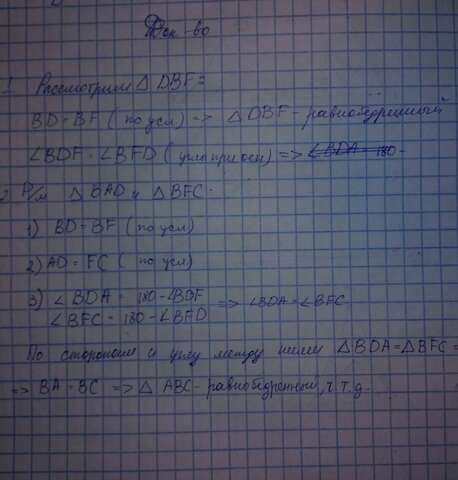 Док-во
1. Рассмотрим △ DBF:
BD = BF (по усл) => △ DBF - равнобедренный
∠BDF = ∠BFD (углы при осн) => ∠BDA = 180-
2. Р/м △ BAD и △ BFC.
1) BD = BF (по усл)
2) AD = FC (по усл)
3) ∠BDA = 180-∠BDF => ∠BDA = ∠BFC
∠BFC = 180-∠BFD
По сторонам и углу между ними △BDA = △BFC =
=> BA = BC => △ ABC - равнобедренный, ч.т.д.